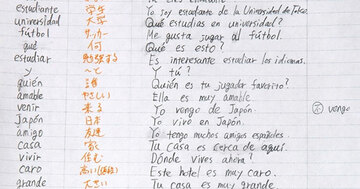 estudiante 学生 Yo soy estudiante de la Universidad de Tokio.
universidad 大学 Qué estudias en universidad?
fútbol サッカー Me gusta jugar al fútbol.
qué 何 Qué es esto?
estudiar 勉強する Es interesante estudiar los idiomas.
y ～と Y tú?
quién 誰 Quién es tu jugador favorito?
amable やさしい Ella es muy amable.
venir 来る Yo vengo de Japón. vengo
Japón 日本 Yo vivo en Japón.
amigo 友達 Yo tengo muchos amigos españoles.
casa 家 Tu casa es cerca de aquí.
vivir 住む Dónde vives ahora?
caro 高い(値段) Este hotel es muy caro.
grande 大きい Tu casa es muy grande.